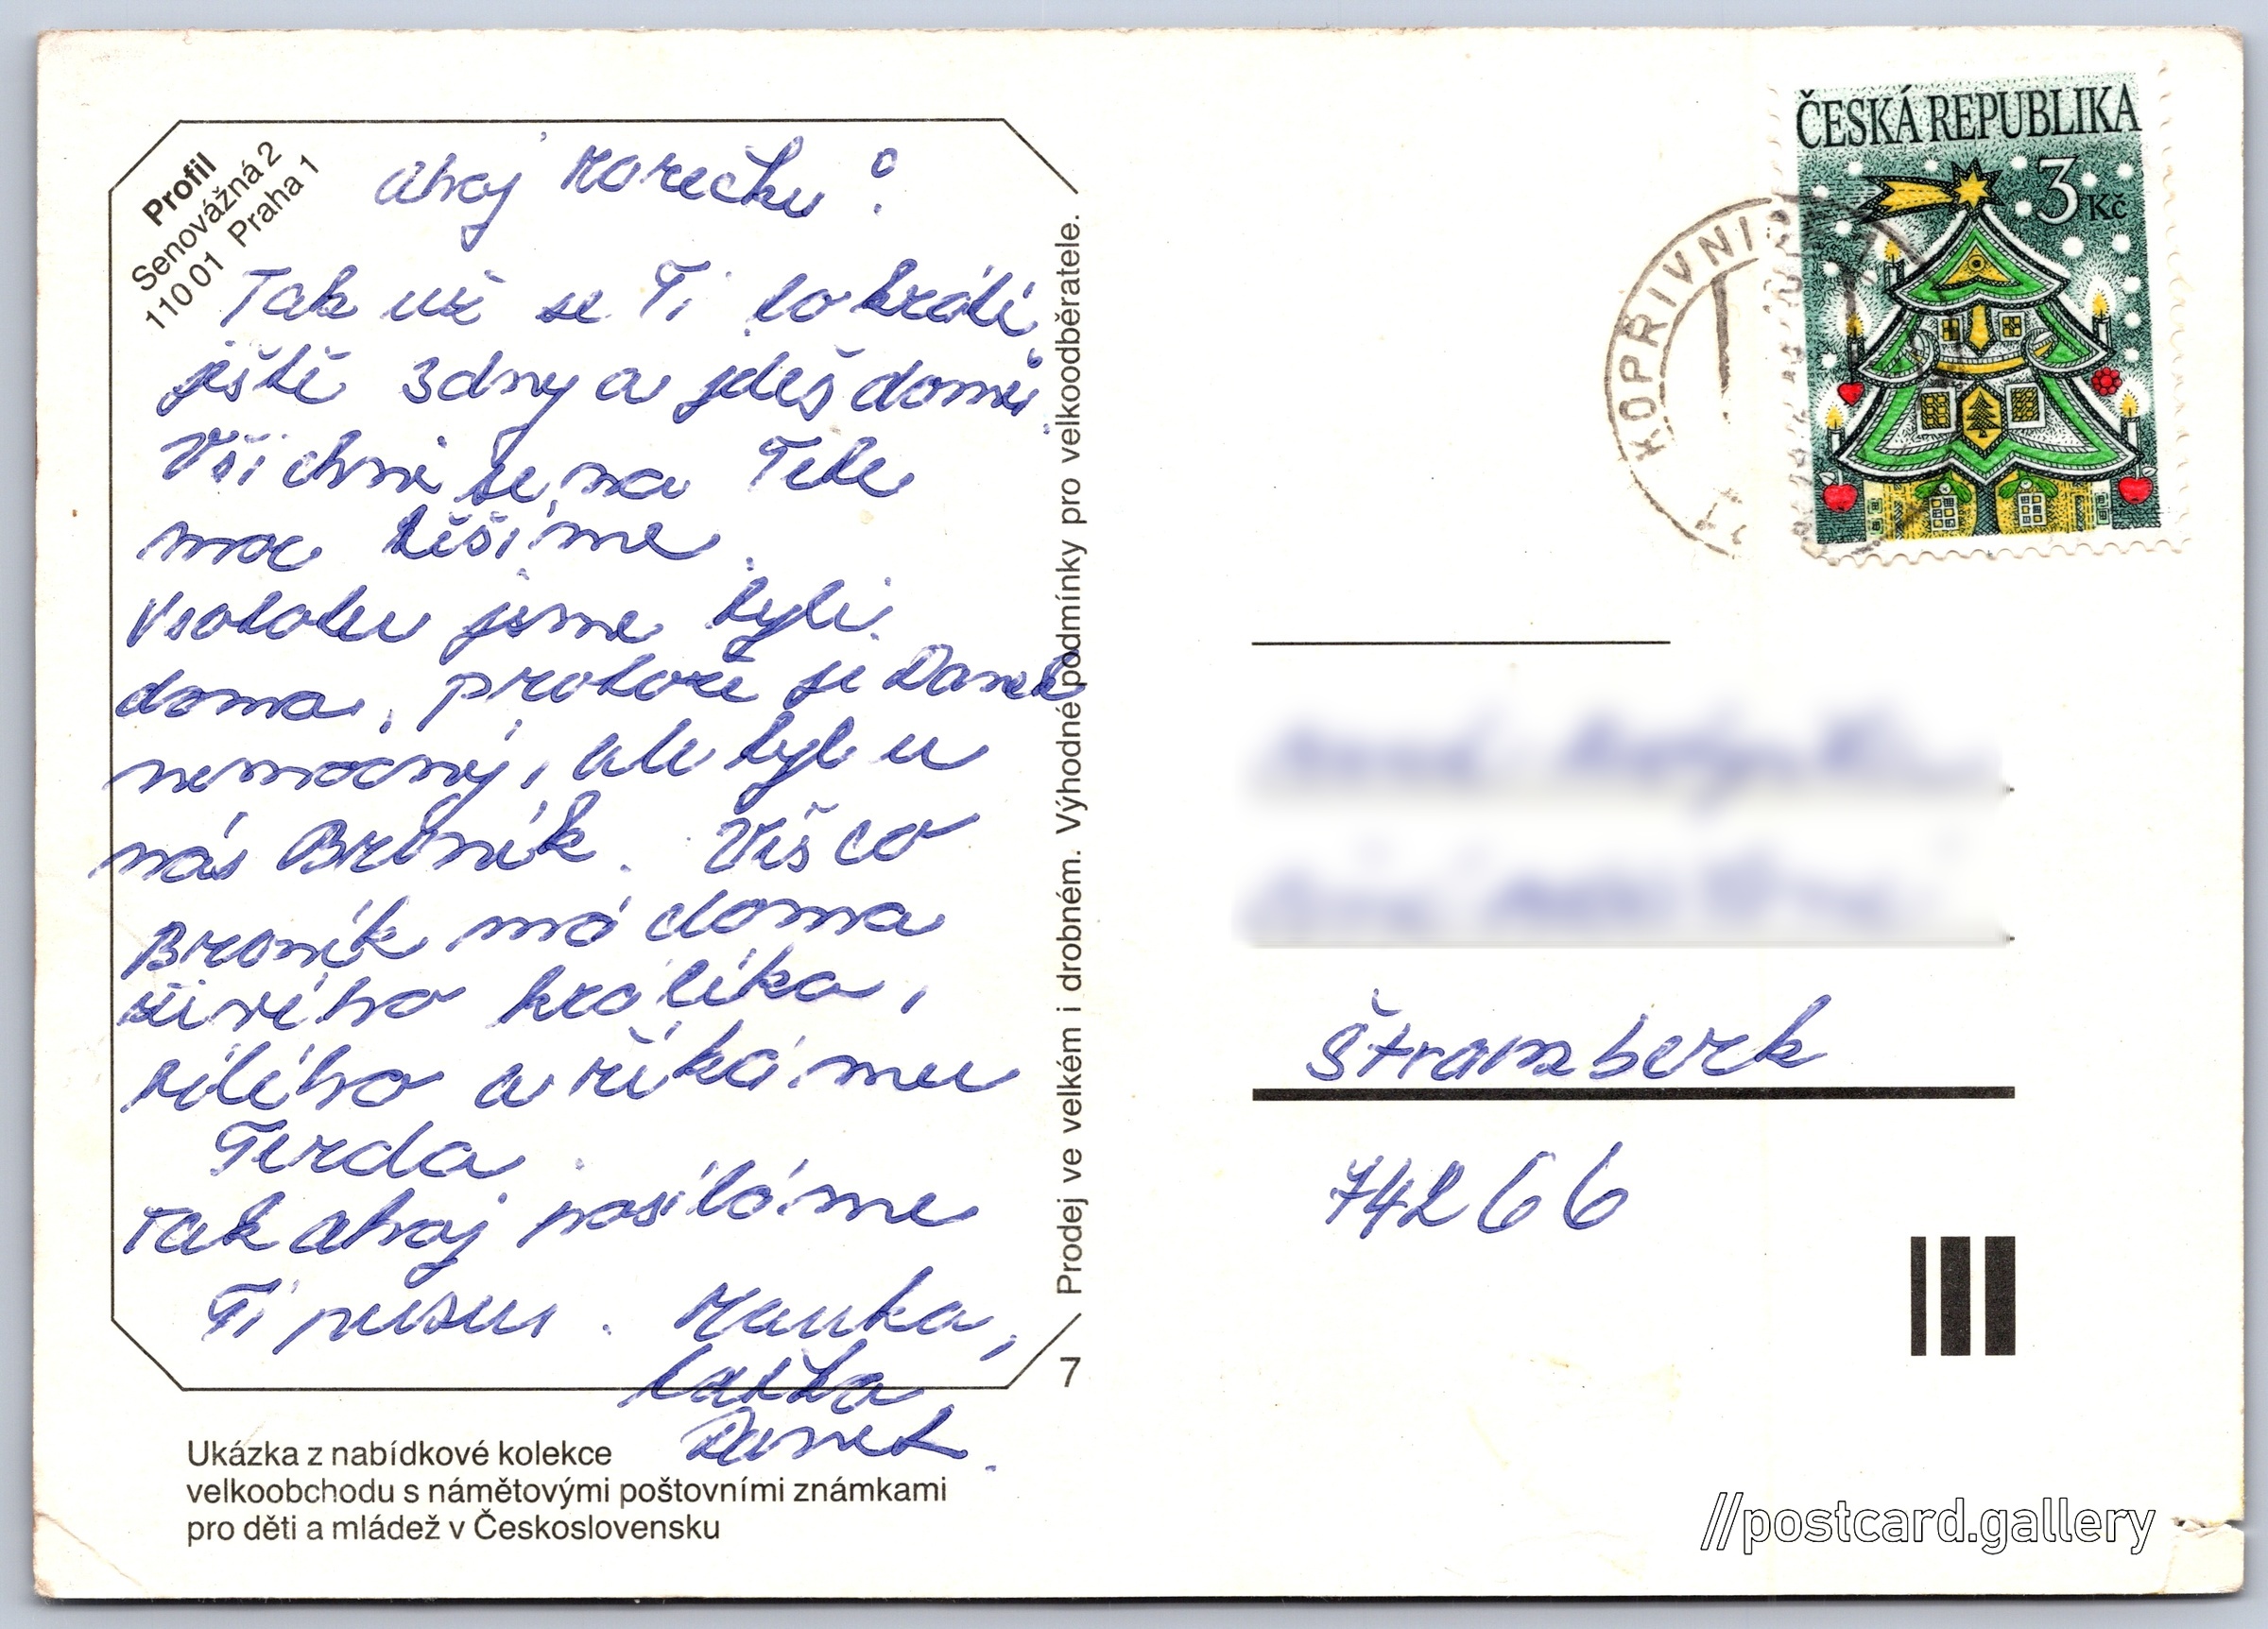 Profil
Senovážná 2
110 01 Praha 1
ahoj Marečku!
Tak už se Ti to krátí,
ještě 3 dny a jdeš domů.
Všichni se na Tebe
moc těšíme.
V sobotu jsme byli
doma, protože je Danek
nemocný, ale byl u
nás Broník. Víš co
Broník má doma
živého králíka,
bílého a říká mu
Ferda.
Tak ahoj posíláme
Ti pusu. Hanka,
Danek.
Prodej ve velkém i drobném. Výhodné podmínky pro velkoodběratele.
7
Ukázka z nabídkové kolekce
velkoobchodu s námětovými poštovními známkami
pro děti a mládež v Československu
ČESKÁ REPUBLIKA
3 Kč
KOPŘIVNICE
Štramberk
742 66
//postcard.gallery